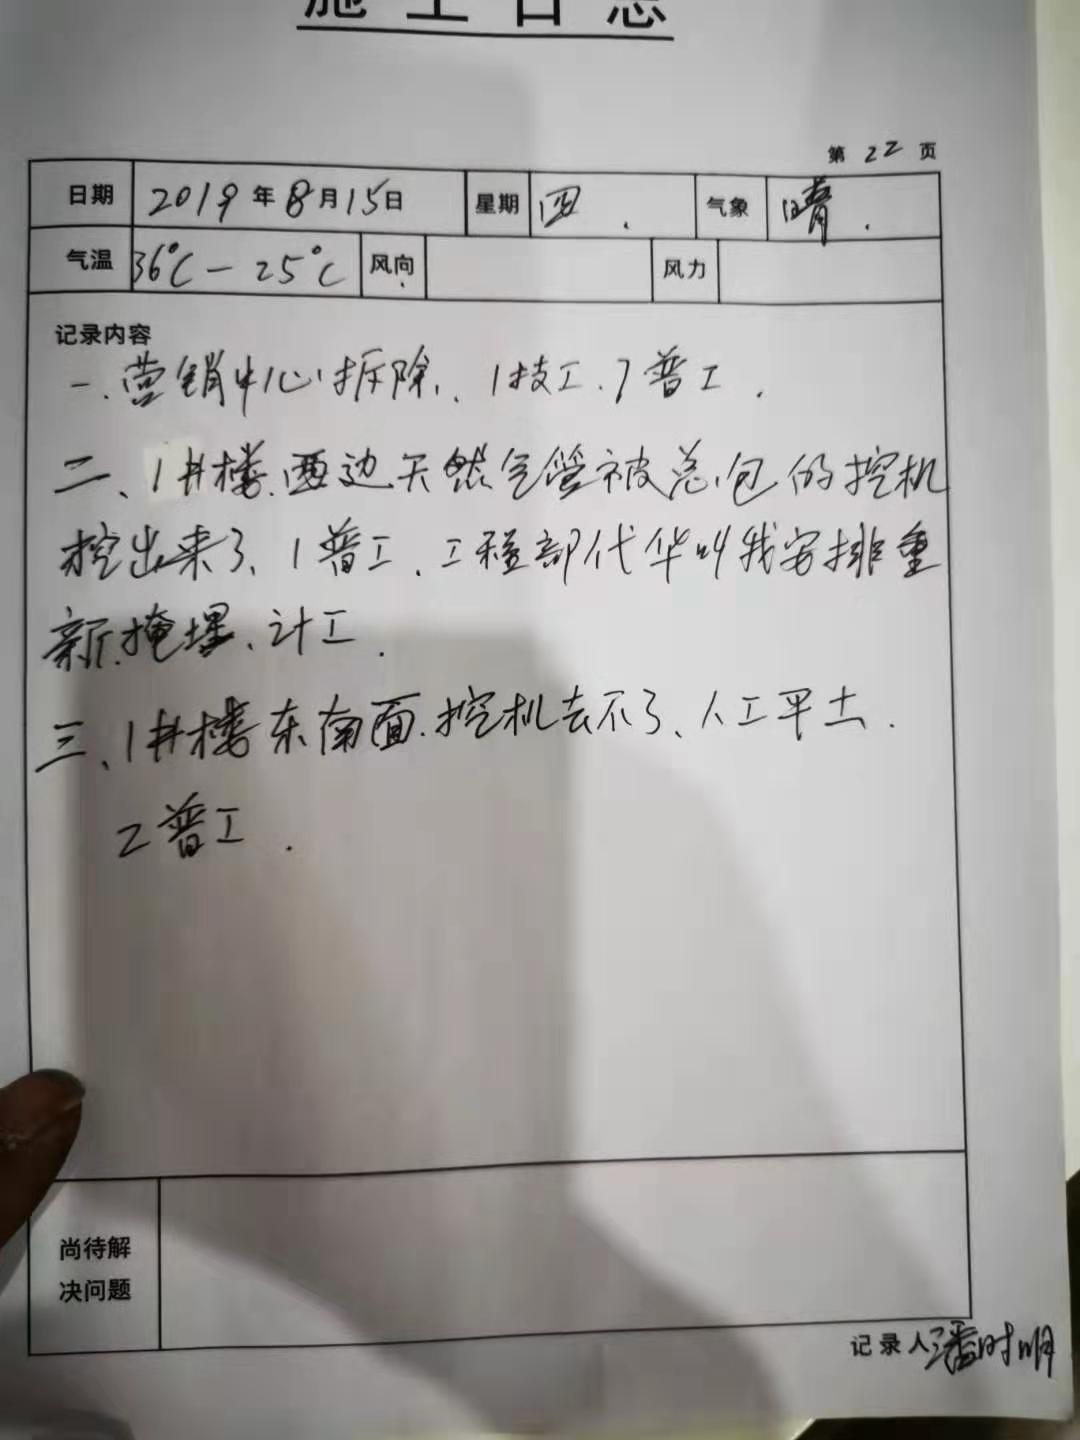 施工日志
第 22 页
日期 2019年8月15日 星期 四. 气象 晴.
气温 36℃-25℃ 风向 风力
记录内容
一、营销中心拆除、1技工、7普工.
二、1#楼西边天然气管被总包的挖机
挖出来了、1普工、工程部代华叫我安排重
新掩埋、计工.
三、1#楼东南面挖机去不了、人工平土.
2普工.
尚待解
决问题
记录人潘时明